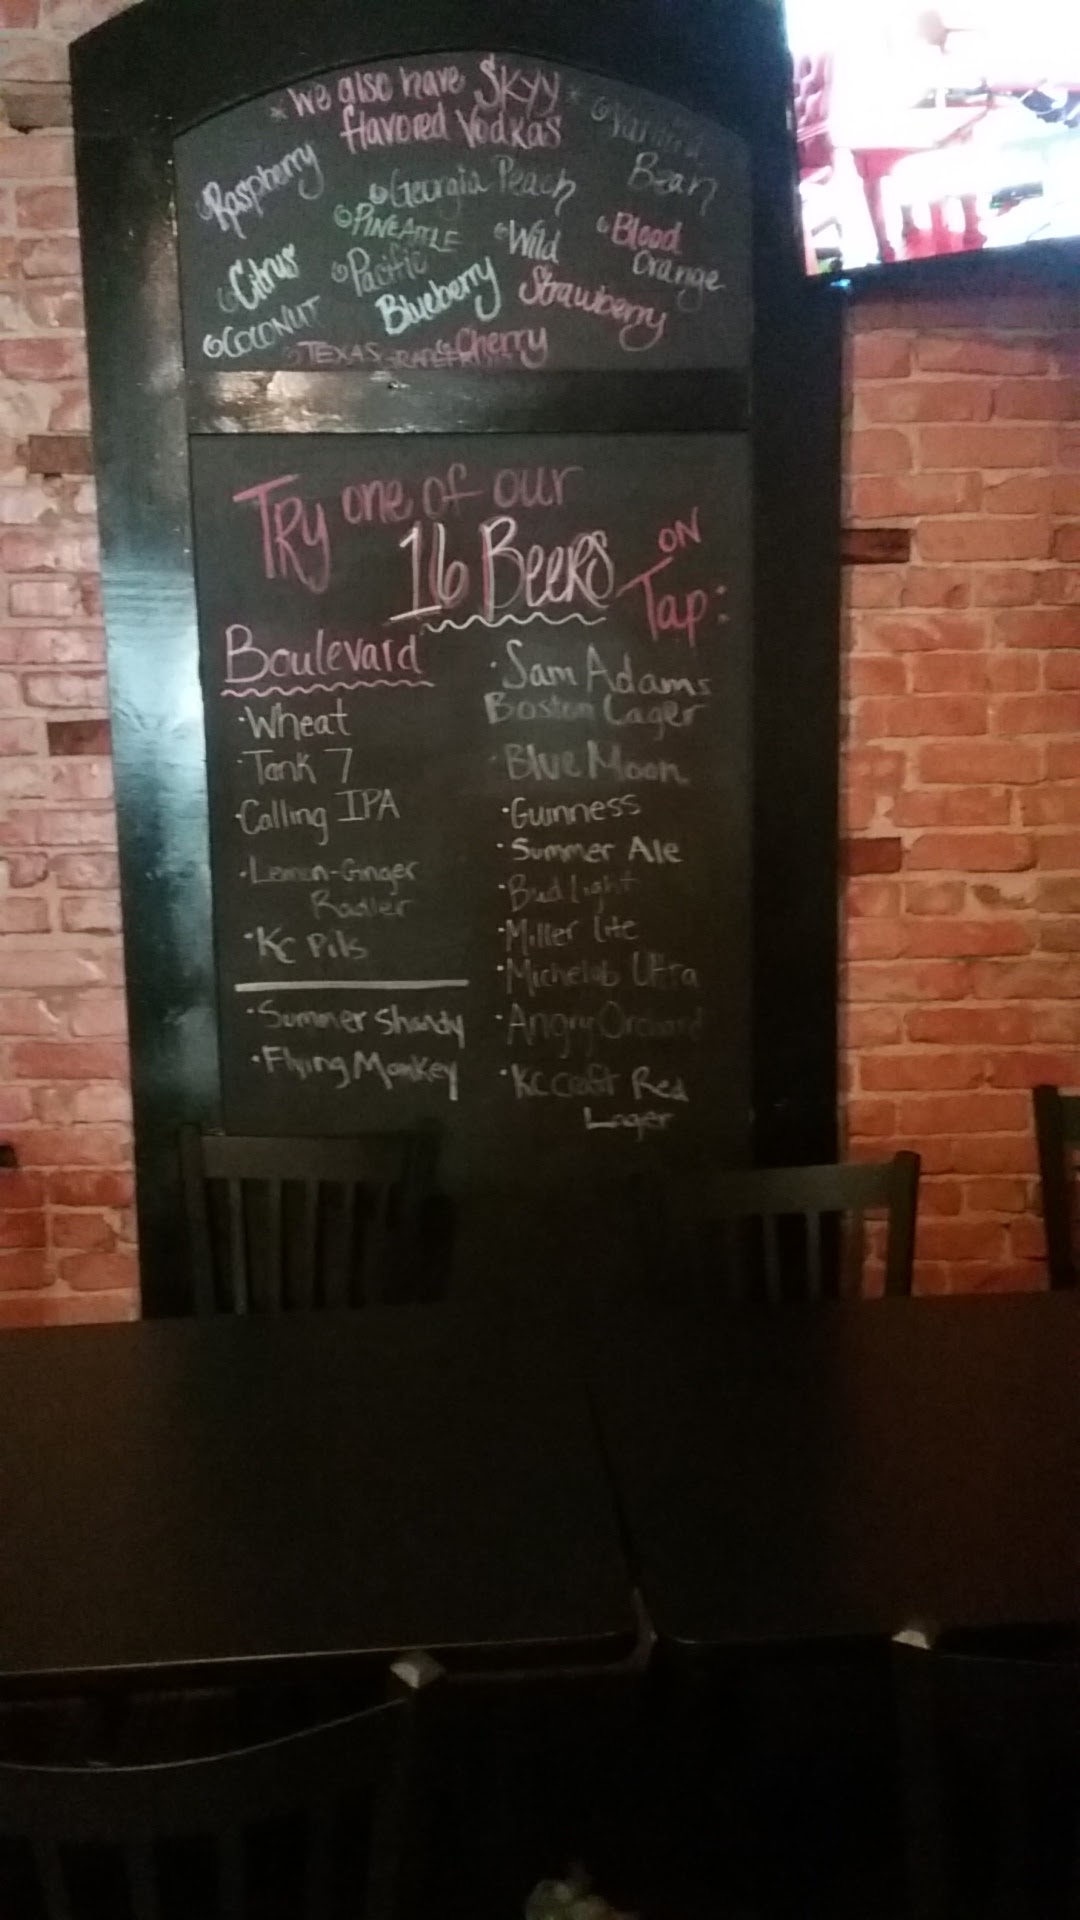 * We also have SKYY *
flavored Vodkas
Raspberry
Georgia Peach
Vanilla
Bean
PINEAPPLE
Wild
Strawberry
Blood
Orange
Citrus
Pacific
Blueberry
COCONUT
TEXAS
Cherry
TRY one of our
16 BEERS ON
Tap:
Boulevard
· Wheat
· Tank 7
· Calling IPA
· Lemon-Ginger
Radler
· KC Pils
· Summer Shandy
· Flying Monkey
· Sam Adams
Boston Lager
· Blue Moon
· Guinness
· Summer Ale
· Bud Light
· Miller Lite
· Michelob Ultra
· Angry Orchard
· KC Craft Red
Lager